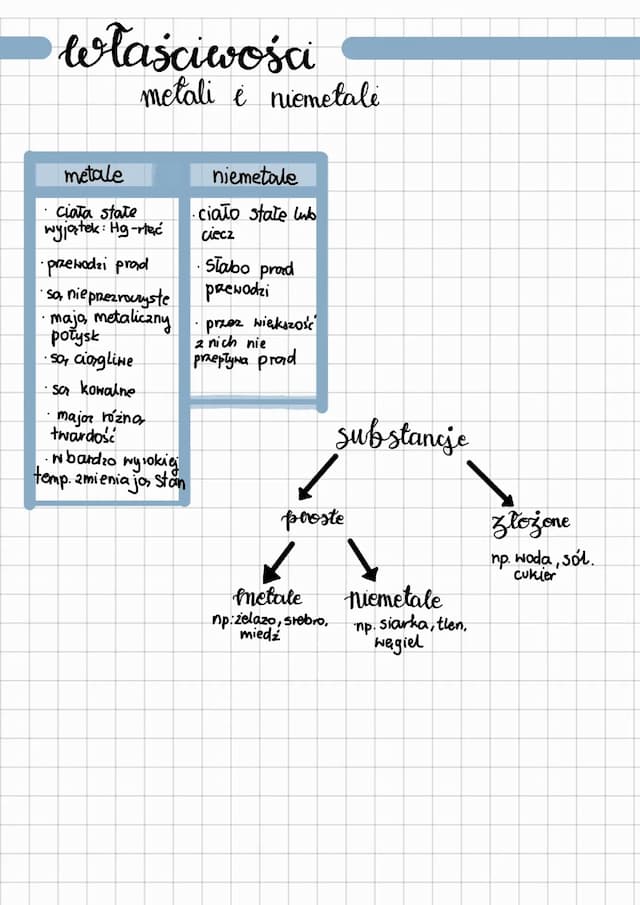 właściwości
metali i niemetali
metale
· ciała stałe
wyjątek: Hg-rtęć
· przewodzi prąd
· są nieprzezroczyste
· mają metaliczny
połysk
· są ciągliwe
· są kowalne
· mają różną
twardość
· w bardzo wysokiej
temp. zmieniają stan
niemetale
· ciało stałe lub
ciecz
· Słabo prąd
przewodzi
· przez większość
z nich nie
przepływa prąd
substancje
proste
złożone
np. woda, sól.
cukier
metale
np: żelazo, srebro,
miedź
niemetale
np. siarka, tlen,
węgiel